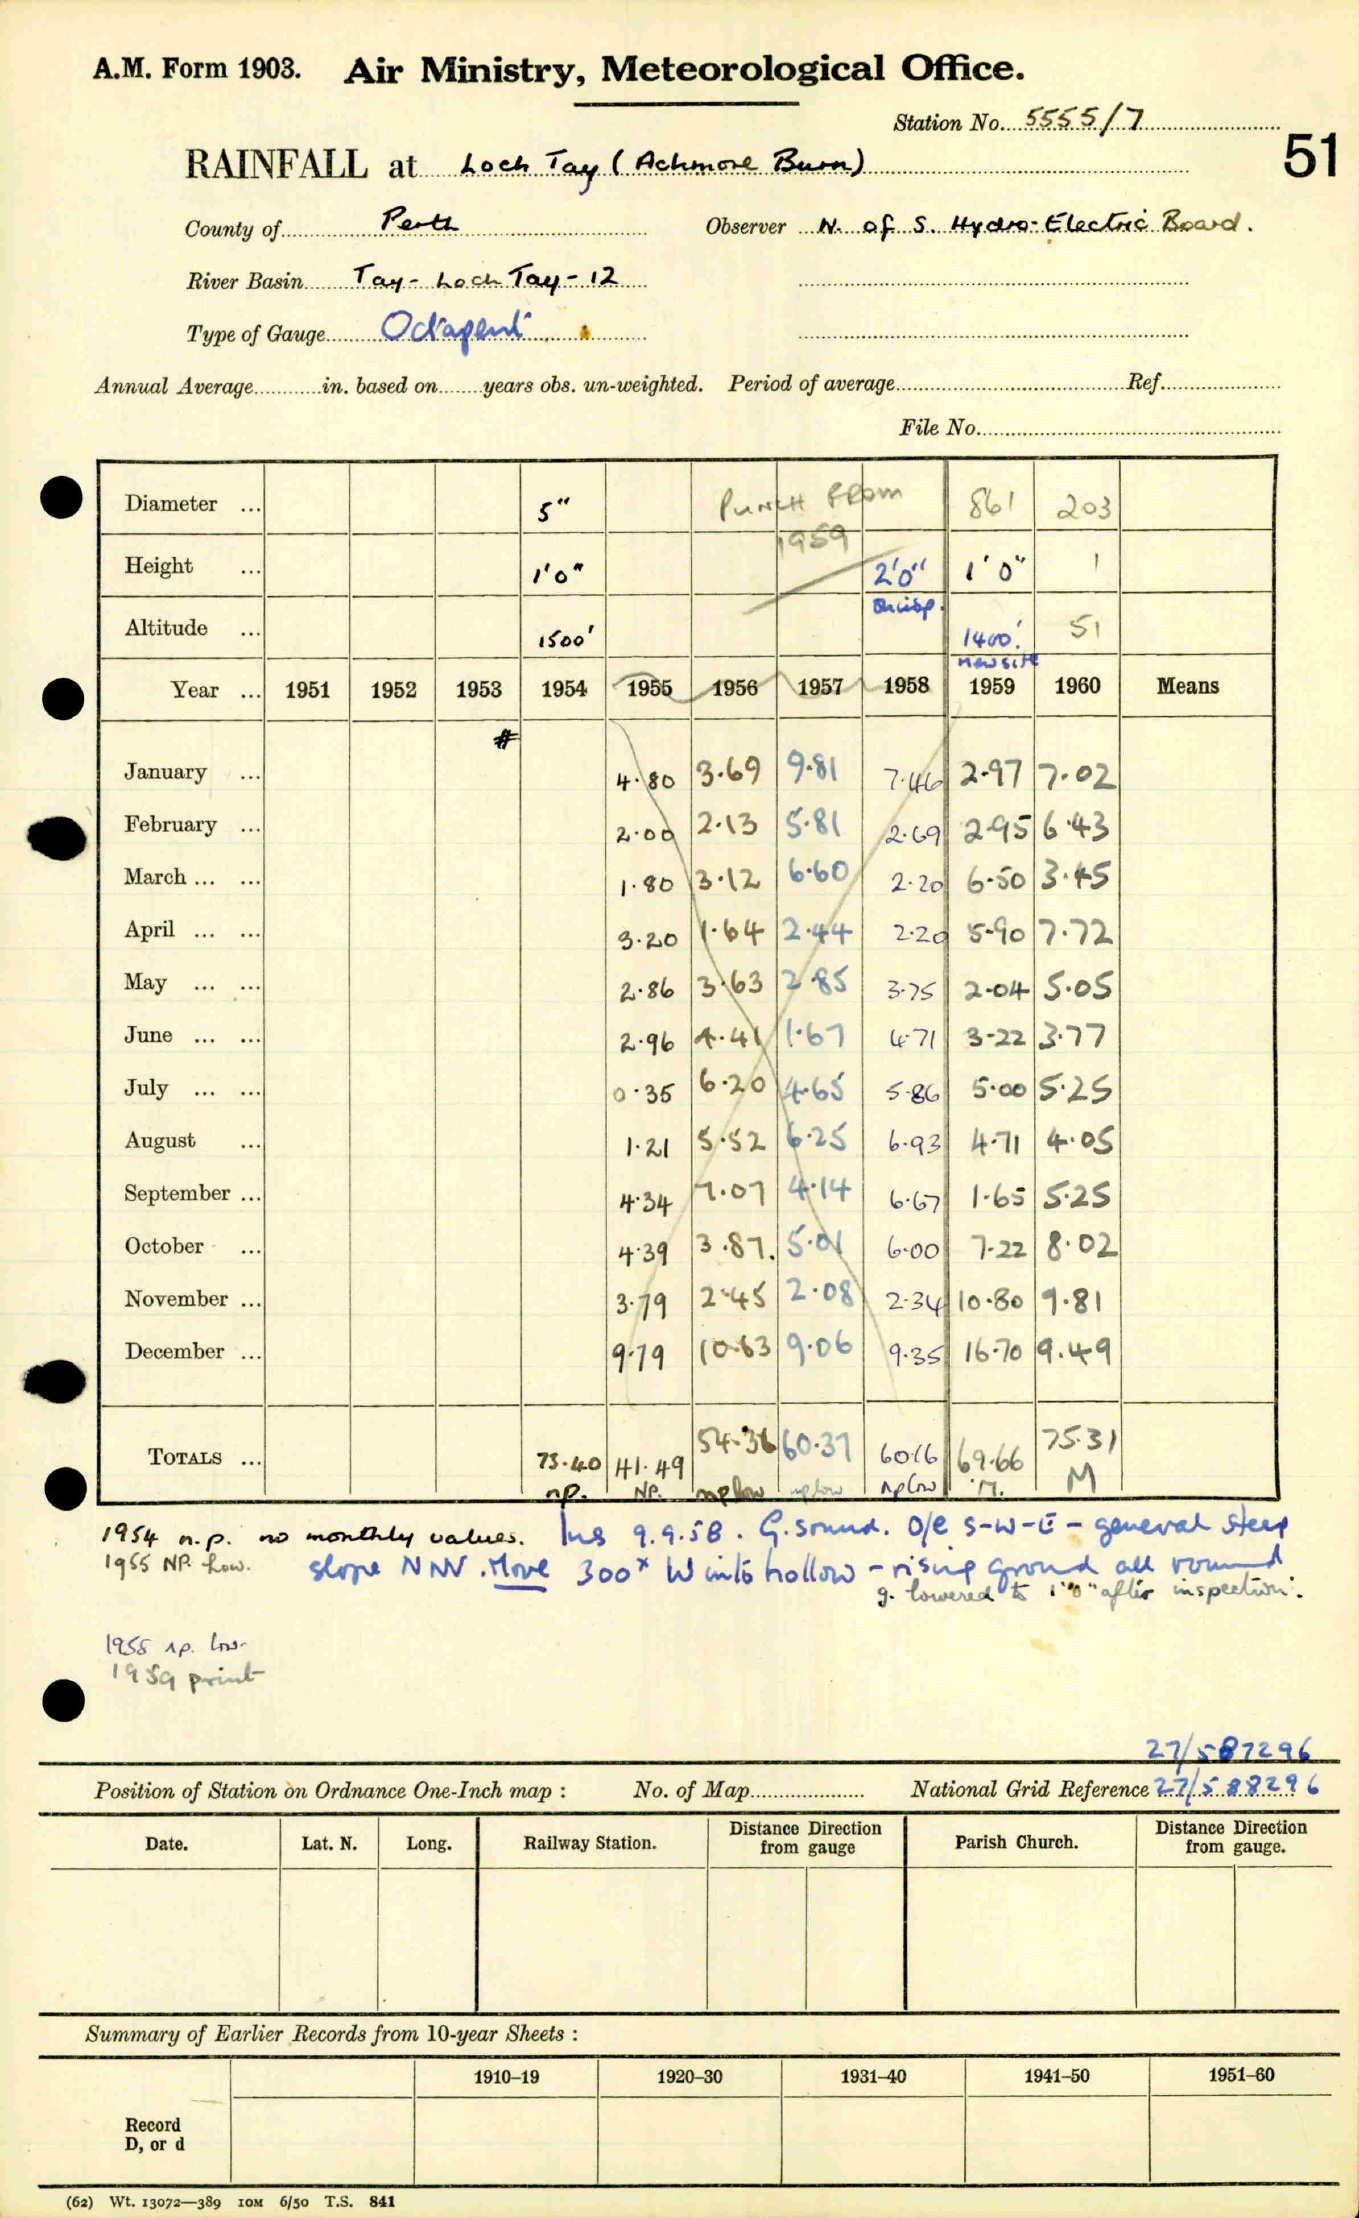 A.M. Form 1903. Air Ministry, Meteorological Office.
Station No. 5555/7
51
RAINFALL at Loch Tay (Achmore Burn)
County of Perth Observer N. of S. Hydro-Electric Board.
River Basin Tay - Loch Tay - 12
Type of Gauge Octapent
Annual Average in. based on years obs. un-weighted. Period of average Ref.
File No.
Diameter ... 5" PUNCH FROM 861 203
1959
Height ... 1'0" 2'0" 1'0" 1
Altitude ... 1500' 1400' 51
new site
Year ... 1951 1952 1953 1954 1955 1956 1957 1958 1959 1960 Means
#
January ... 4.80 3.69 9.81 7.46 2.97 7.02
February ... 2.00 2.13 5.81 2.69 2.95 6.43
March ... ... 1.80 3.12 6.60 2.20 6.50 3.45
April ... ... 3.20 1.64 2.44 2.20 5.90 7.72
May ... ... 2.86 3.63 2.85 3.75 2.04 5.05
June ... ... 2.96 4.41 1.67 4.71 3.22 3.77
July ... ... 0.35 6.20 4.65 5.86 5.00 5.25
August ... 1.21 5.52 6.25 6.93 4.71 4.05
September ... 4.34 7.07 4.14 6.67 1.65 5.25
October ... 4.39 3.87. 5.01 6.00 7.22 8.02
November ... 3.79 2.45 2.08 2.34 10.80 9.81
December ... 9.79 10.63 9.06 9.35 16.70 9.49
TOTALS ... 73.40 41.49 54.36 60.37 60.16 69.66 75.31
np. NP. np low np low np low M. M
1954 n.p. no monthly values. Ins 9.9.58. G. sound. O/e S-W-E - general steep
1955 NP. Low. slope NNW. Move 300x W into hollow - rising ground all round
g. lowered to 1'0" after inspection.
1958 np. low
1959 print
27/587296
Position of Station on Ordnance One-Inch map : No. of Map National Grid Reference 27/588296
Date. Lat. N. Long. Railway Station. Distance Direction from gauge Parish Church. Distance Direction from gauge.
Summary of Earlier Records from 10-year Sheets :
1910–19 1920–30 1931–40 1941–50 1951–60
Record
D, or d
(62) Wt. 13072—389 10M 6/50 T.S. 841